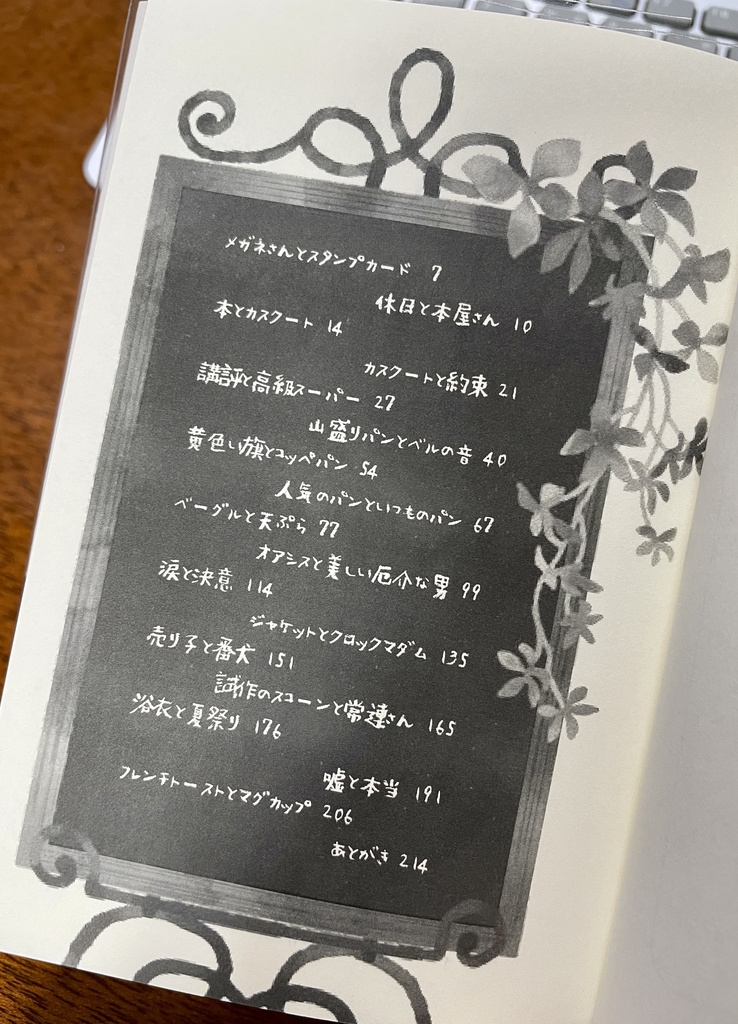 メガネさんとスタンプカード 7
休日と本屋さん 10
本とカスクート 14
カスクートと約束 21
講評と高級スーパー 27
山盛りパンとベルの音 40
黄色い旗とコッペパン 54
人気のパンといつものパン 67
ベーグルと天ぷら 77
オアシスと美しい厄介な男 99
涙と決意 114
ジャケットとクロックマダム 135
売り子と番犬 151
試作のスコーンと常連さん 165
浴衣と夏祭り 176
嘘と本当 191
フレンチトーストとマグカップ 206
あとがき 214